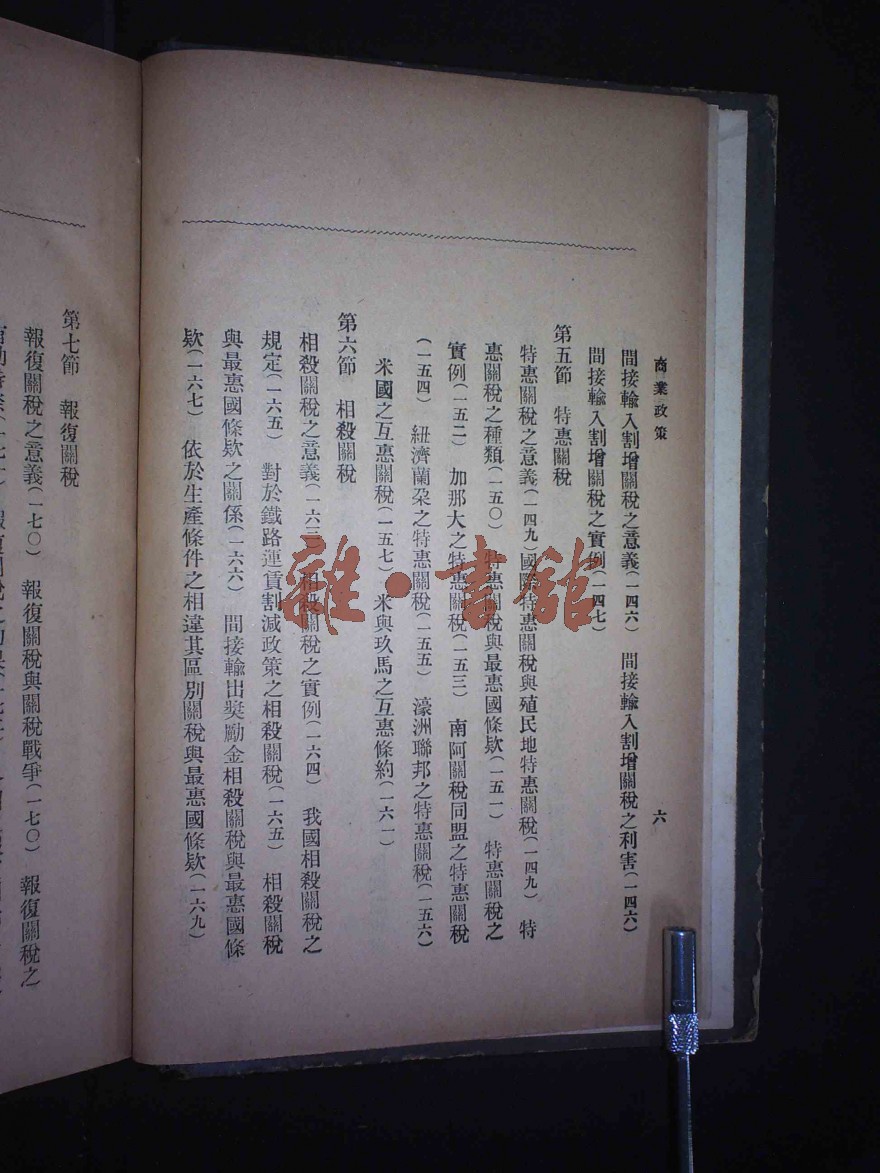 商業政策
六
間接輸入割增關稅之意義(一四六) 間接輸入割增關稅之利害(一四六)
間接輸入割增關稅之實例(一四七)
第五節 特惠關稅
特惠關稅之意義(一四九)國際特惠關稅與殖民地特惠關稅(一四九) 特
惠關稅之種類(一五〇) 特惠關稅與最惠國條欵(一五一) 特惠關稅之
實例(一五二) 加那大之特惠關稅(一五三) 南阿關稅同盟之特惠關稅
(一五四) 紐濟蘭朶之特惠關稅(一五五) 濠洲聯邦之特惠關稅(一五六)
米國之互惠關稅(一五七) 米與玖馬之互惠條約(一六一)
第六節 相殺關稅
相殺關稅之意義(一六三) 相殺關稅之實例(一六四) 我國相殺關稅之
規定(一六五) 對於鐵路運賃割減政策之相殺關稅(一六五) 相殺關稅
與最惠國條欵之關係(一六六) 間接輸出奬勵金相殺關稅與最惠國條
欵(一六七) 依於生產條件之相違其區別關稅與最惠國條欵(一六九)
第七節 報復關稅
報復關稅之意義(一七〇) 報復關稅與關稅戰爭(一七〇) 報復關稅之
雜·書館